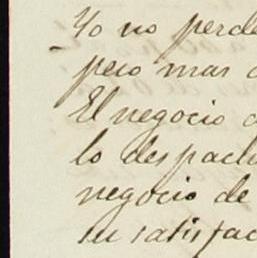 Yo no perde
pero mas
El negocio
lo despach
negocio de
su satisfac